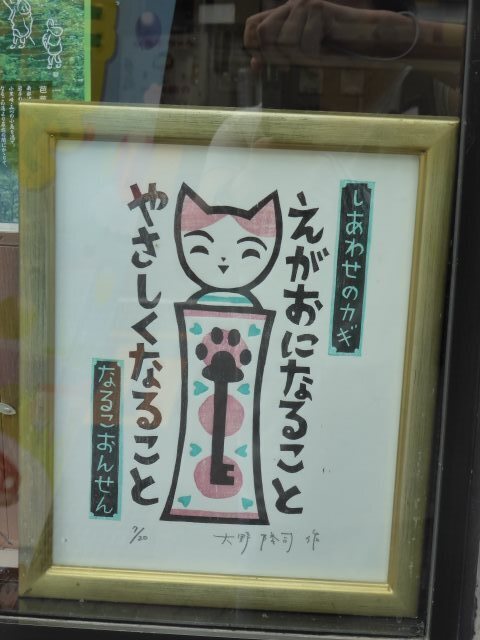 しあわせのカギ
えがおになること
やさしくなること
なるこおんせん
7/20
大野隆司 作